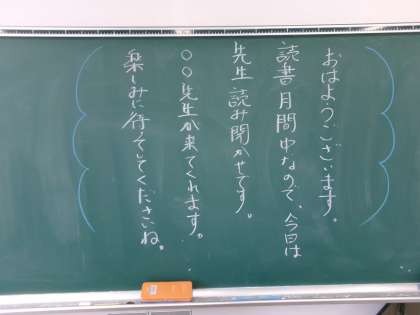 おはようございます。
読書月間中なので、今日は
先生読み聞かせです。
○○先生が来てくれます。
楽しみに待っていてくださいね。